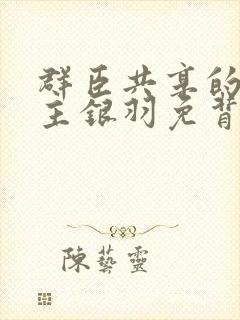 群臣共享的
主银羽免背
陳藝靈